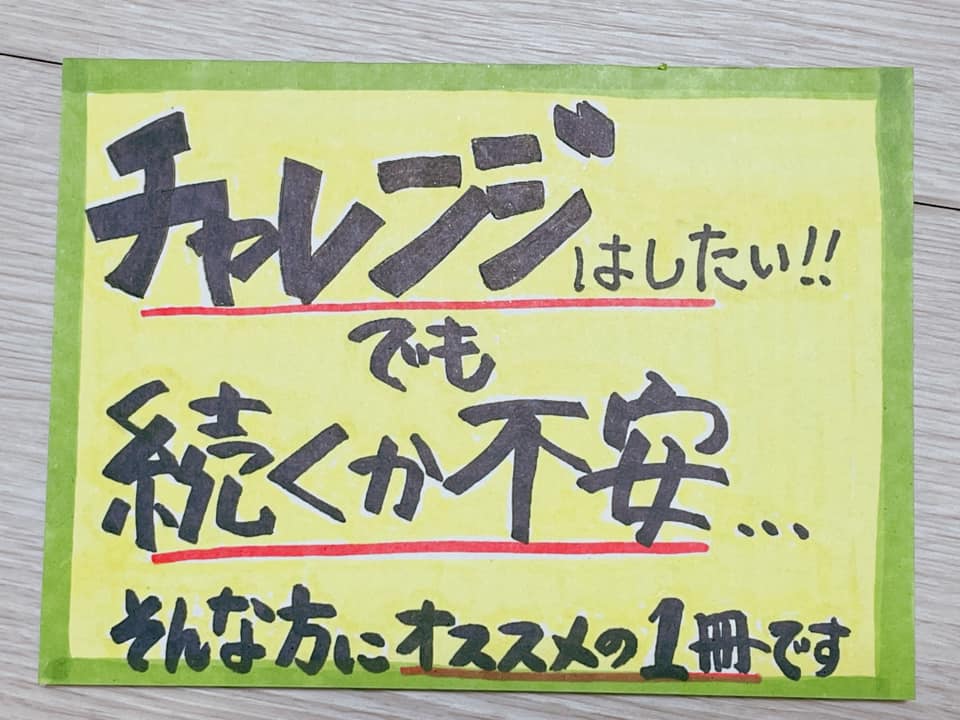 チャレンジはしたい!!
でも
続くか不安...
そんな方にオススメの1冊です